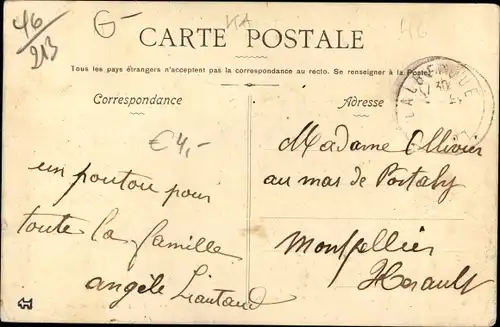 46
213
G-
KA
46
CARTE POSTALE
Tous les pays étrangers n'acceptent pas la correspondance au recto. Se renseigner à la Poste.
Correspondance
Adresse
€4,-
un poutou pour
toute la famille
angèle Liautaud
Madame Ollivier
au mas de Portaly
Montpellier
Herault